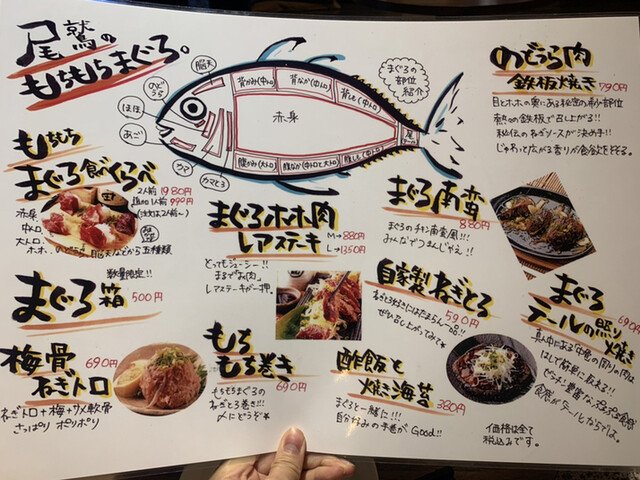 尾鷲の
もちもちまぐろ。
脳天
のどうら
ほほ
あご
カマ
カマとろ
背かみ(中トロ)
背なか(中トロ)
背しも(中トロ)
赤身
腹かみ(大トロ)
腹なか(中トロと大トロ)
腹しも(中トロ)
尾
まぐろの
部位
紹介
のどうら肉
鉄板焼き 790円
目とホホの裏にある秘密の希少部位
熱々の鉄板で召し上がる!!
秘伝のねぎソースが決め手!!
じゅわっと広がる香りが食欲をそそる。
もちもち
まぐろ食べくらべ
2人前 1980円
追加1人前 990円
(注文は2人前〜)
赤身、
中トロ、
大トロ、
ホホ、のどうら、脳天などから五種類
数量限定!!
まぐろホホ肉
レアステーキ
M→880円
L→1350円
とってもジューシー!!
まるで"お肉"
レアステーキが一押。
まぐろ南蛮
880円
まぐろのチキン南蛮風!!!
みんなでつまんじゃえ!!
まぐろ箱 500円
自家製ねぎとろ
590円
ねぎとろ好きにはたまらん一品!!
ぜひ召し上がってみて
まぐろ
テールの照り焼き
690円
梅骨
ねぎトロ
690円
ねぎトロ+梅+サメ軟骨
さっぱり ポリポリ
もち
もち巻き
690円
もちもちまぐろの
ねぎとろ巻き!!!
〆にどうぞ
酢飯と
焼き海苔
380円
まぐろと一緒に!!!
自分好みの手巻がGood!!
価格は全て
税込みです。